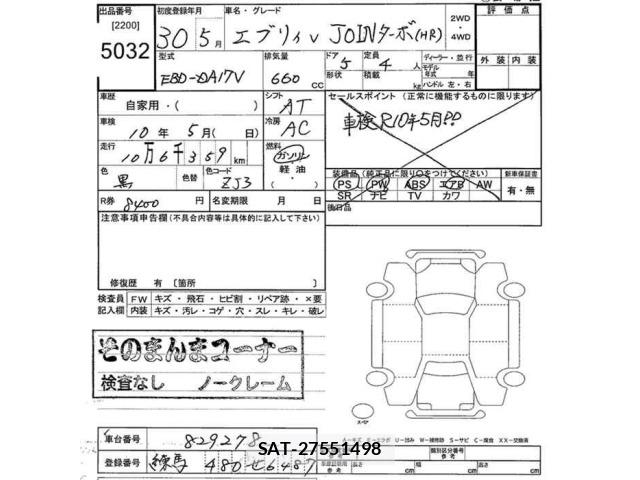 出品番号 初度登録年月 車名・グレード 2WD 評価点
[2200] 30年5月 エブリィV JOINターボ(HR) 4WD
5032 型式 排気量 ドア 定員 ディーラー・並行 外装 内装
EBD-DA17V 660 CC 5 4人 モデル 年式 年
形状 積載 kg ハンドル 左・右
車歴 シフト セールスポイント (正常に機能するものに限ります)
自家用・( ) AT 車検R10年5月!!
車検 冷房
10年5月( 日) AC
走行 燃料
10万6千359km ガソリン
軽油
( )
色 色替 色コード 装備品 (純正品に限り○をつけてください) 新車保証書
黒 ZJ3 PS PW ABS エアB AW 有・無
SR ナビ TV カワ
R券 8400円 名変期限 月 日 後日品
注意事項申告欄(不具合内容等は具体的に記入して下さい)
修復歴 有 [箇所 ]
検査員 FW キズ・飛石・ヒビ割・リペア跡・×要
記入欄 内装 キズ・汚レ・コゲ・穴・スレ・キレ・破レ
そのまんまコーナー
検査なし ノークレーム
車台番号 829278
SAT-27551498
登録番号 練馬 480 セ6487
類別区分番号
参考
長さ cm 幅 cm 高さ cm